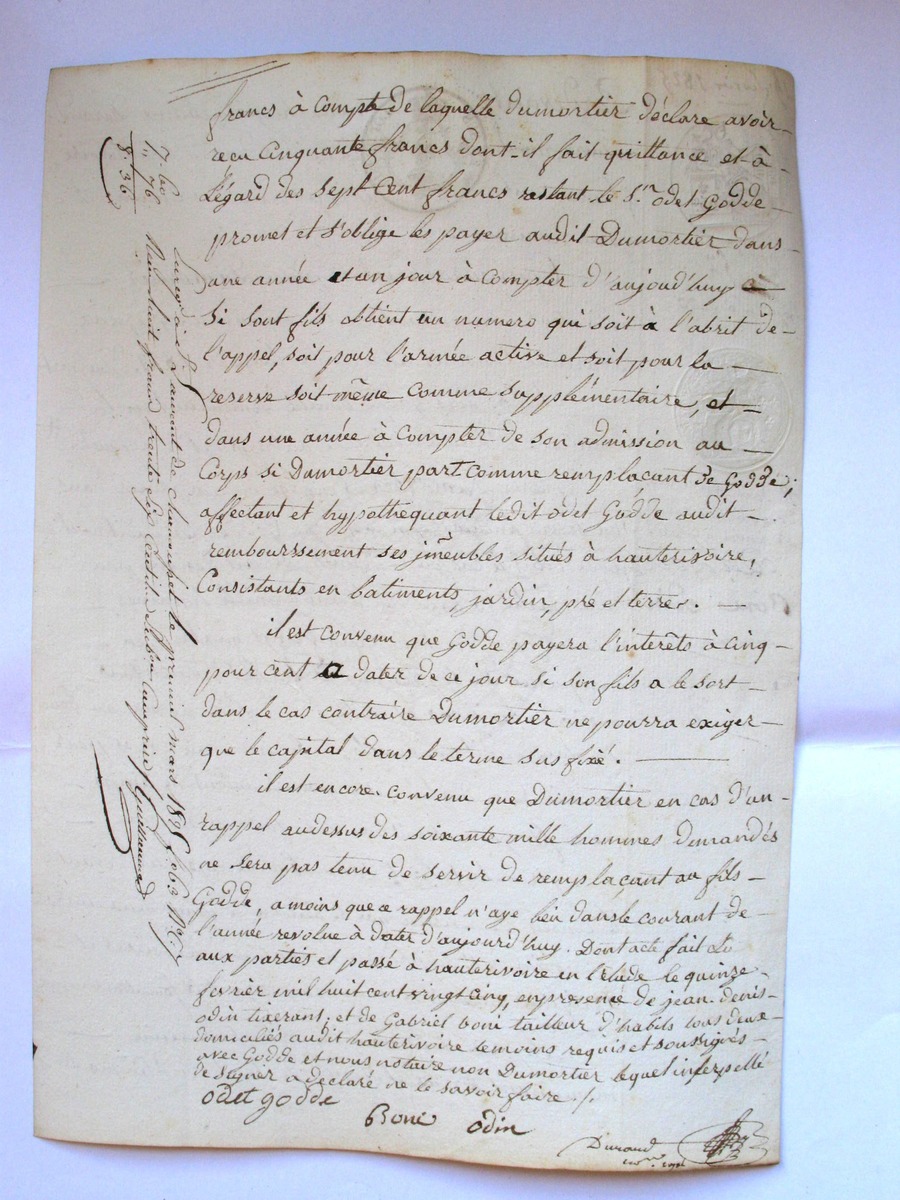 francs à compte de laquelle Dumortier déclare avoir
recu Cinquante francs dont-il fait quittance et à
L'égard des Sept Cent francs restant le S.r odet Godde
promet et s'oblige les payer audit Dumortier dans
une année et un jour à compter d'aujourd'huy
Si sont fils obtient un numero qui soit à l'abrit de
l'appel, soit pour l'armée active et soit pour la
reserve soit même comme supplémentaire, et
dans une année à compter de son admission au
Corps si Dumortier part comme remplaçant de Godde;
affectant et hypothequant ledit odet Godde audit
rembourssement ses jmeubles situés à hauterivoire,
Consistants en batiments, jardin, pré et terre.
il est convenu que Godde payera l'interêts à cinq
pour cent a dater de ce jour si son fils a le sort
dans le cas contraire Dumortier ne pourra exiger
que le capital dans le terme sus fixé.
il est encore convenu que Dumortier en cas d'un
rappel audessus des soixante mille hommes demandés
ne sera pas tenu de servir de remplaçant au fils
Godde, a moins que ce rappel n'aye lieu dans le courant de
l'année revolue à dater d'aujourd'huy. Dont acte fait lu
aux parties et passé à hauterivoire en l'étude le quinze
fevrier mil huit cent vingt cinq, en presence de jean denis
odin tixerant; et de Gabriel boni tailleur d'habits tous deux
domiciliés audit hauterivoire temoins requis et soussignés
avec Godde et nous notaire non Dumortier lequel interpellé
de signer a declaré ne le savoir faire ./.
odet godde
Boni odin
Durand
7 60
" 76
8. 36
à St Laurent de chamousset le premier mars 1825 f.o 63
Reçu huit francs trente six Centil. dixième Compris. Guillaumed